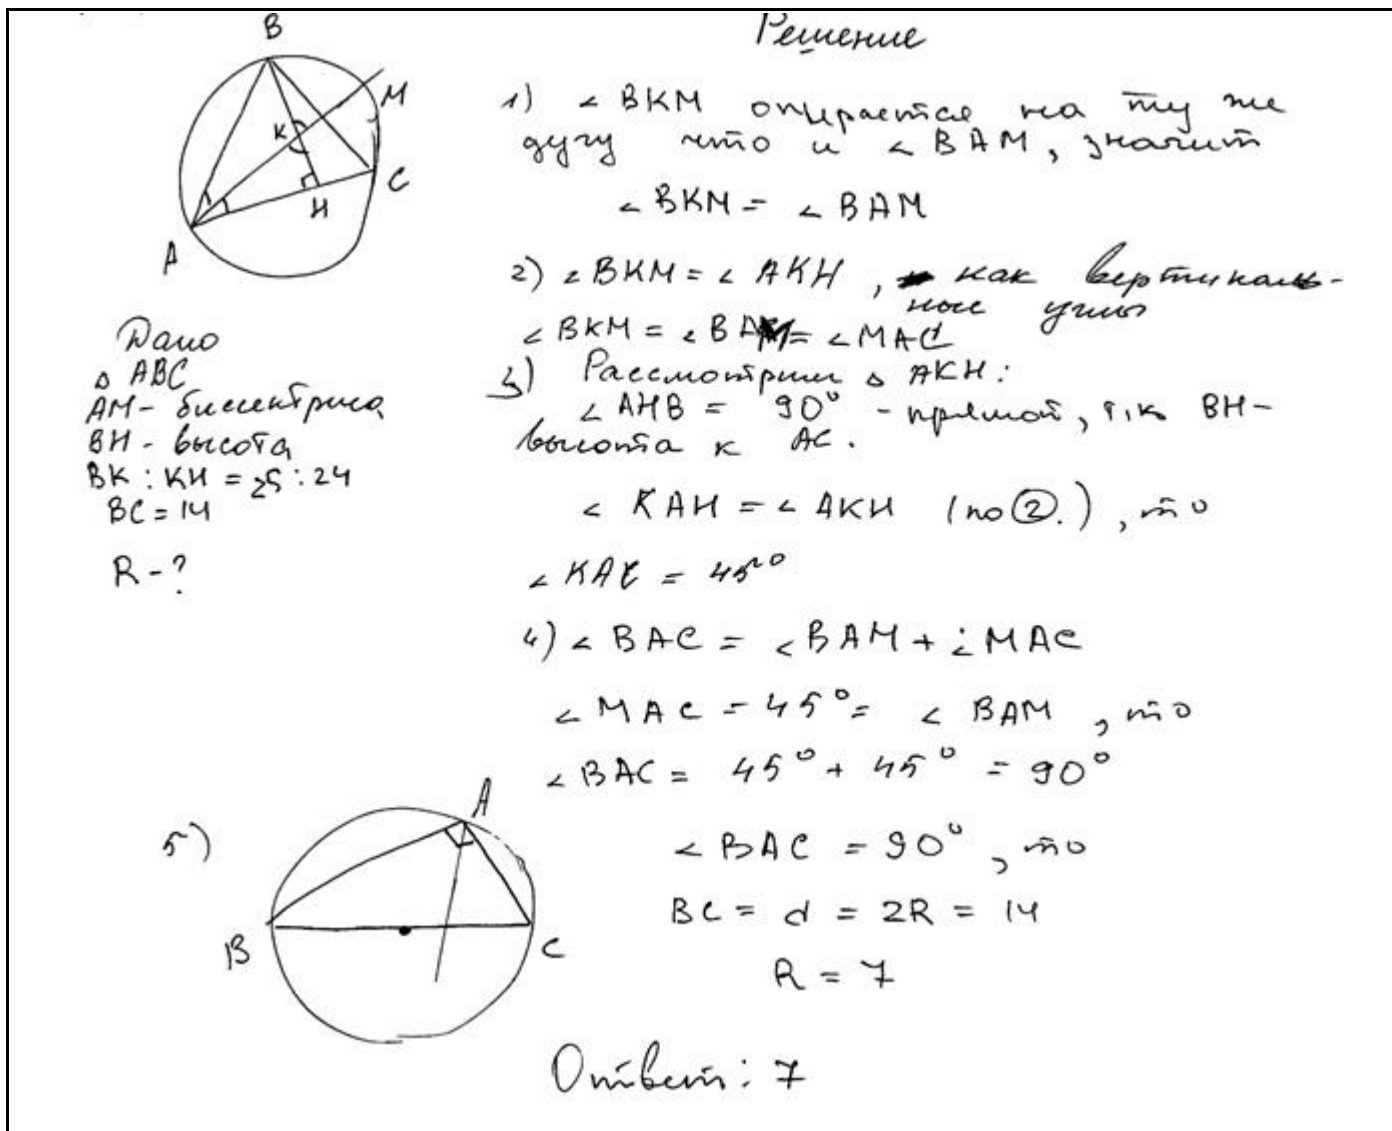 B
M
K
C
H
A
Дано
△ ABC
AM - биссектриса
BH - высота
BK : KH = 25 : 24
BC = 14
R - ?
Решение
1) ∠ BKM опирается на ту же
дугу что и ∠ BAM, значит
∠ BKM = ∠ BAM
2) ∠ BKM = ∠ AKH, как вертикаль-
ные углы
∠ BKM = ∠ BAM = ∠ MAC
3) Рассмотрим △ AKH:
∠ AHB = 90° - прямой, т.к BH -
высота к AC.
∠ KAH = ∠ AKH (по ②.), то
∠ KAC = 45°
4) ∠ BAC = ∠ BAM + ∠ MAC
∠ MAC = 45° = ∠ BAM, то
∠ BAC = 45° + 45° = 90°
5)
A
B
C
∠ BAC = 90°, то
BC = d = 2R = 14
R = 7
Ответ: 7